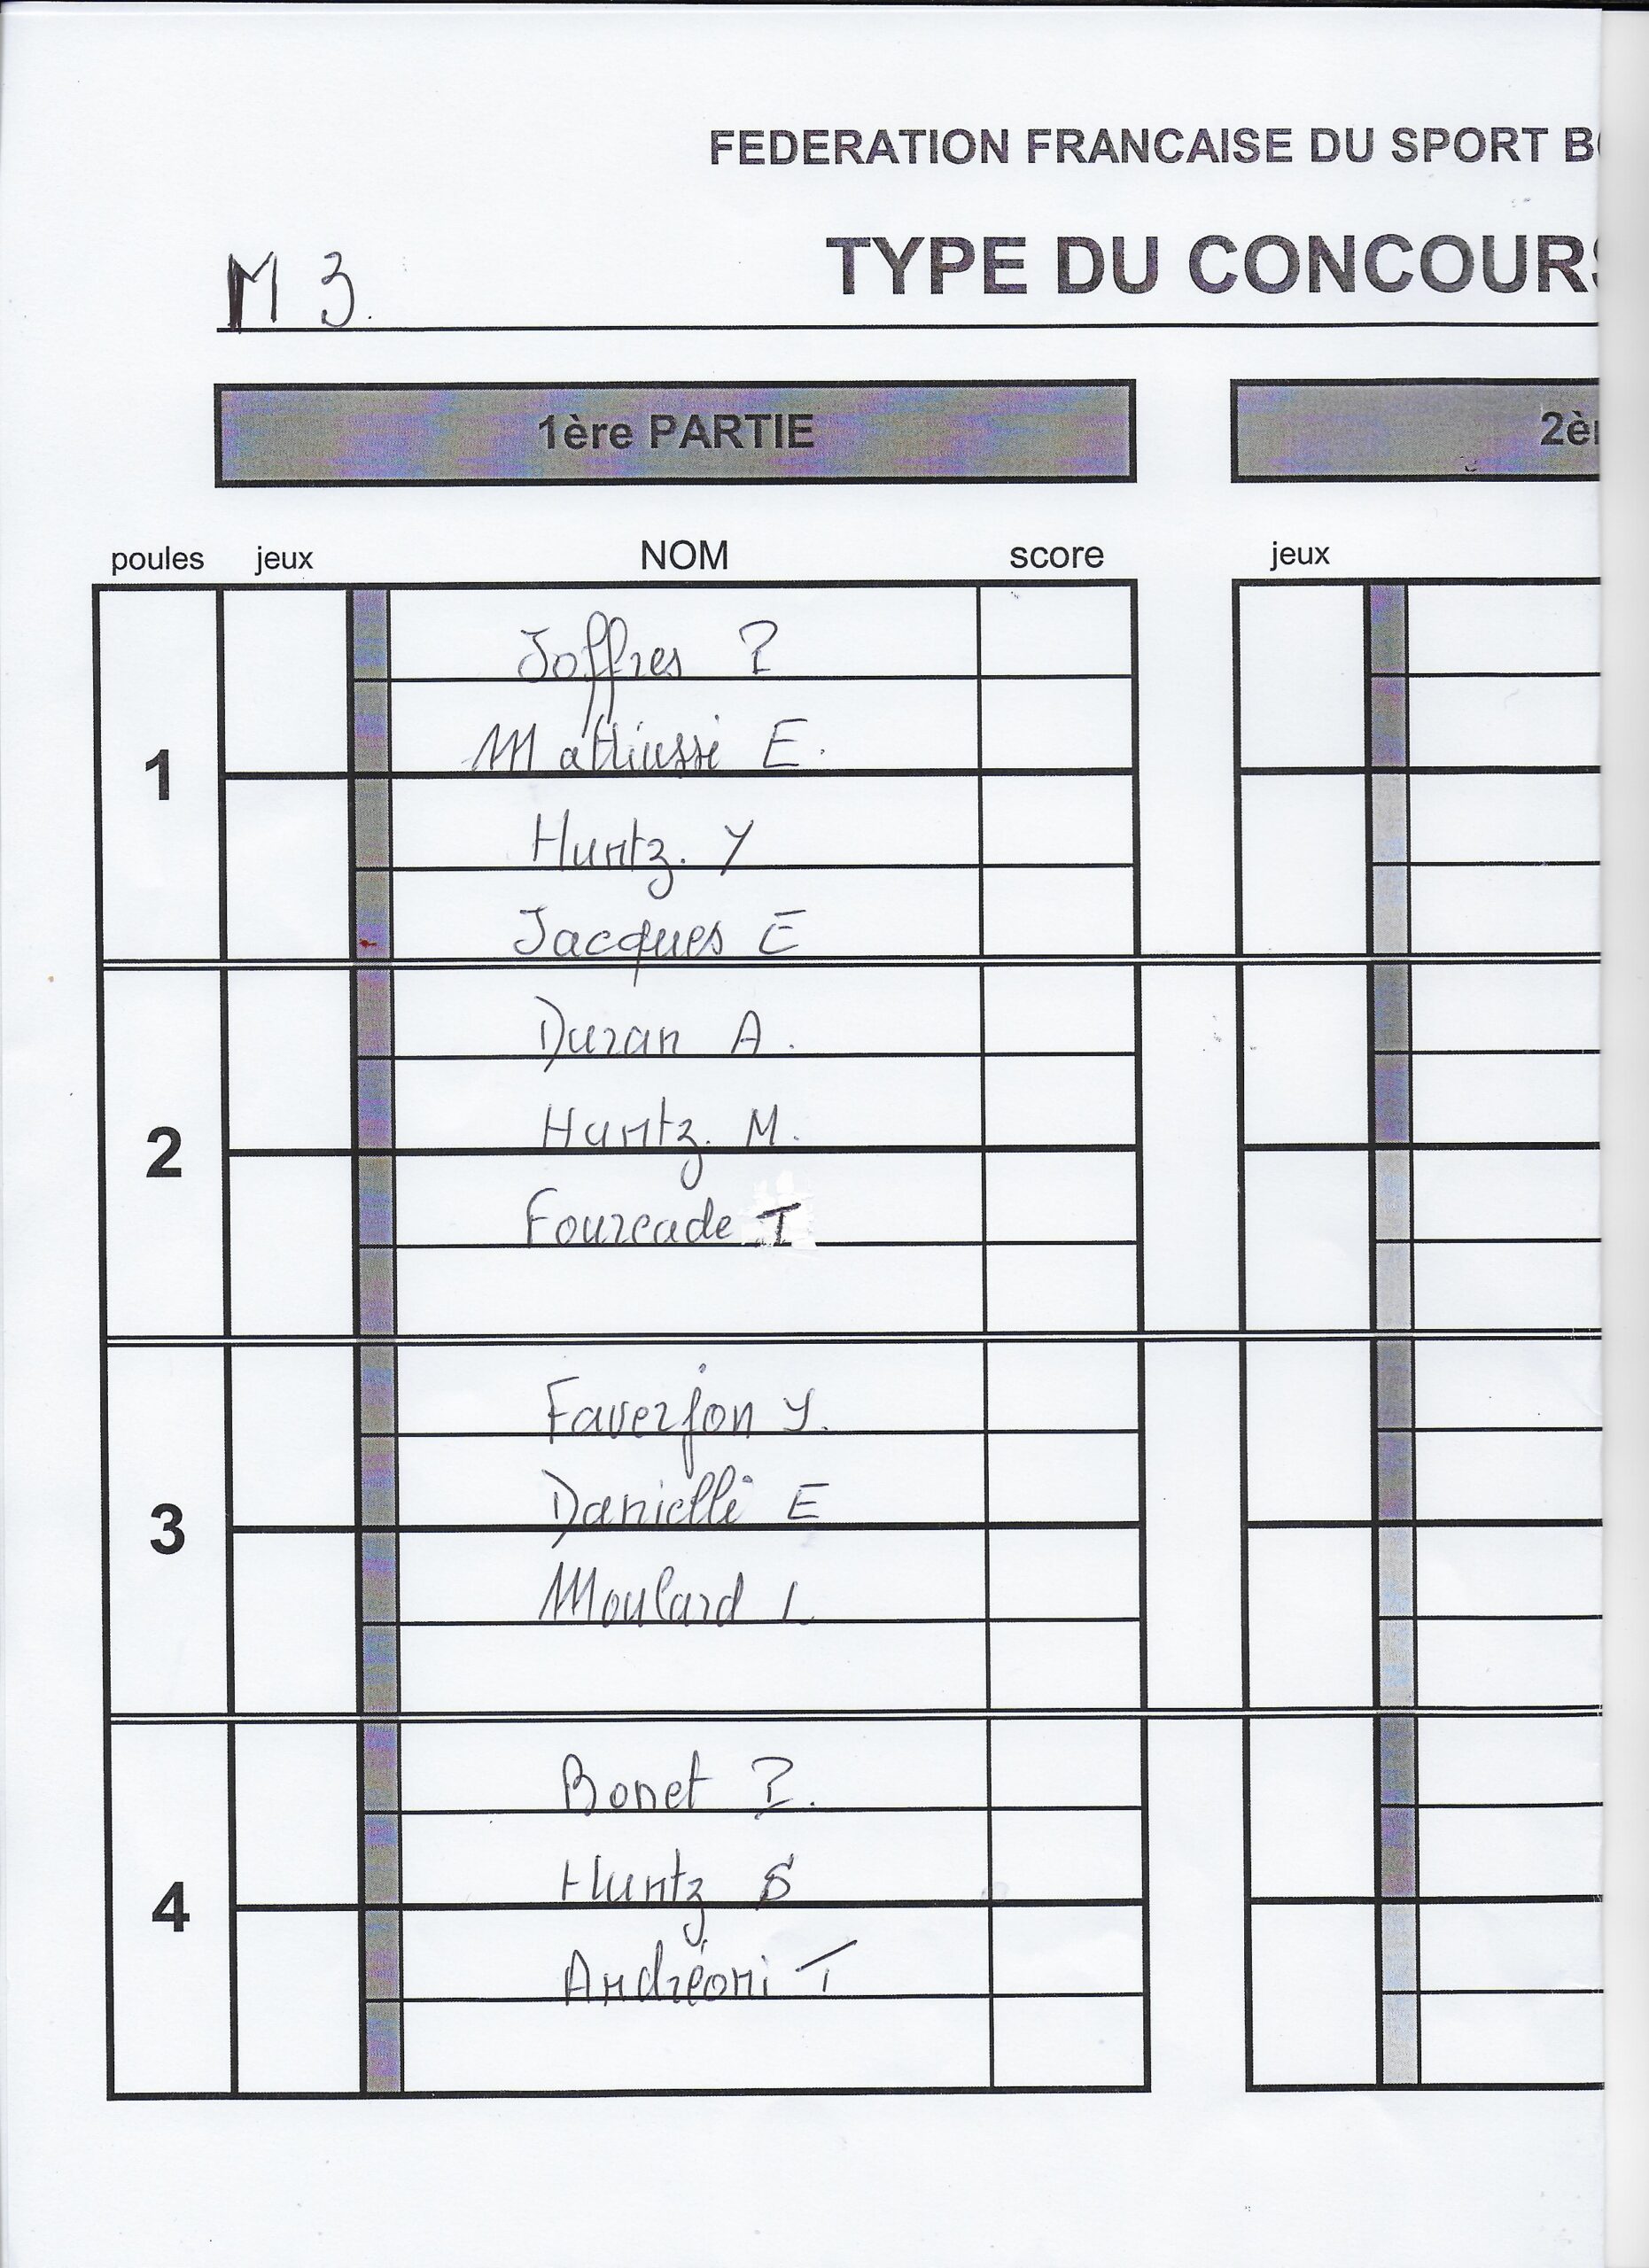 FEDERATION FRANCAISE DU SPORT B
M 3. TYPE DU CONCOURS
1ère PARTIE 2è
poules jeux NOM score jeux
Joffres P
Mathiussi E.
1
Huntz. Y
Jacques E
Duran A.
Huntz. M.
2
Fourcade T
Faverjon Y.
Danielli E
3
Moulard L
Bonet P.
Huntz S
4
Andréoni T